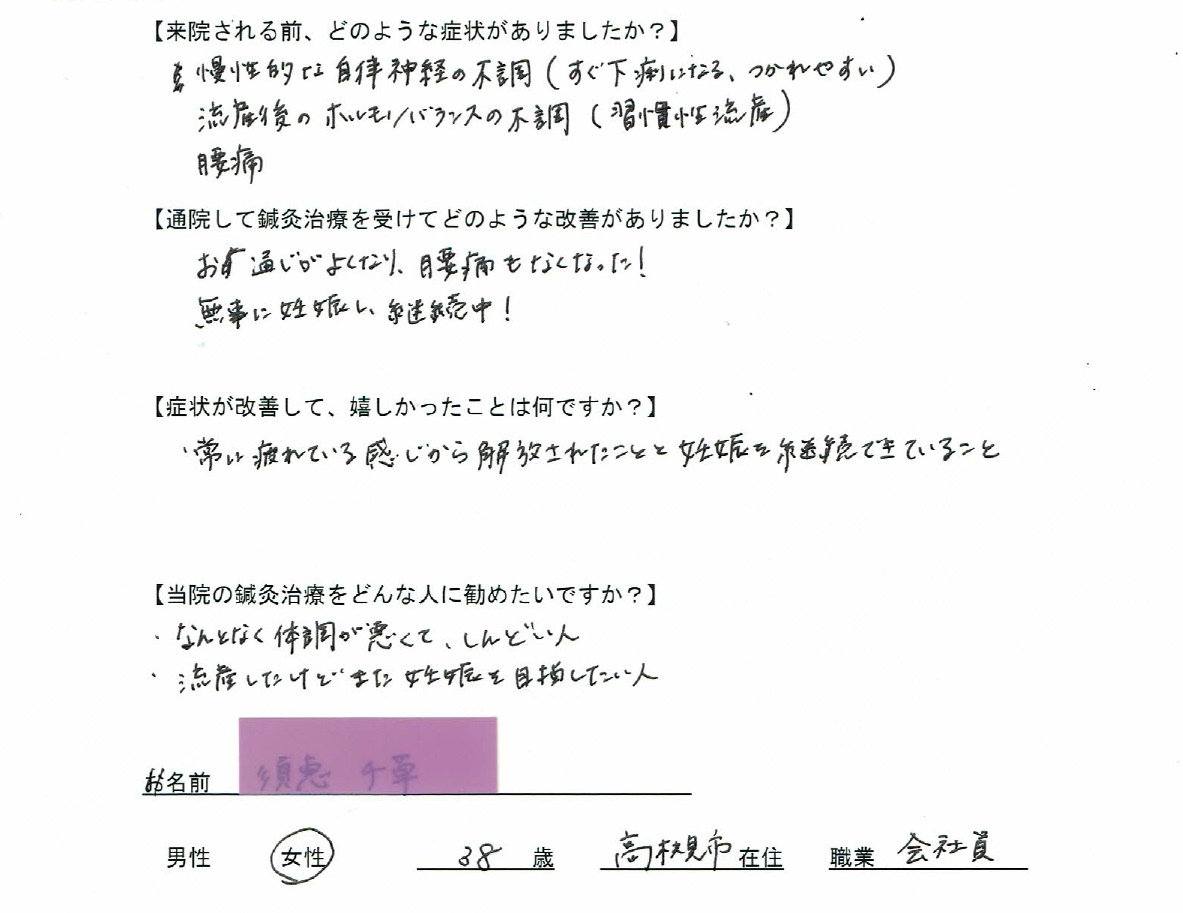 【来院される前、どのような症状がありましたか？】
慢性的な自律神経の不調（すぐ下痢になる、つかれやすい）
流産後のホルモンバランスの不調（習慣性流産）
腰痛
【通院して鍼灸治療を受けてどのような改善がありましたか？】
お通じがよくなり、腰痛もなくなった！
無事に妊娠し、継続中！
【症状が改善して、嬉しかったことは何ですか？】
・常に疲れている感じから解放されたことと妊娠を継続できていること
【当院の鍼灸治療をどんな人に勧めたいですか？】
・なんとなく体調が悪くて、しんどい人
・流産したけどまた妊娠を目指したい人
お名前
男性 女性 38 歳 高槻市 在住 職業 会社員